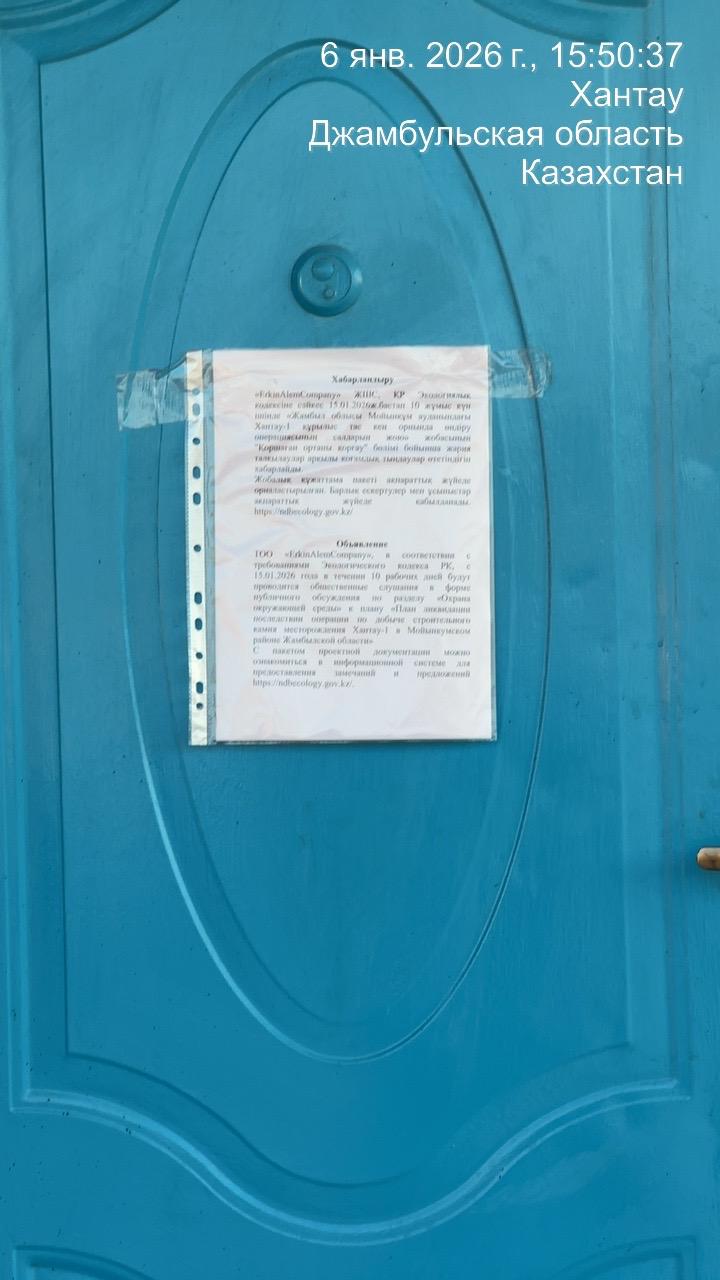 6 янв. 2026 г., 15:50:37
Хантау
Джамбульская область
Казахстан
Хабарландыру
«ErkinAlemCompany» ЖШС, ҚР Экологиялық
кодексіне сәйкес 15.01.2026ж.бастап 10 жұмыс күн
ішінде «Жамбыл облысы Мойынқұм ауданындағы
Хантау-1 құрылыс тас кен орнында өндіру
операциясының салдарын жою» жобасының
"Қоршаған ортаны қорғау" бөлімі бойынша жария
талқылаулар арқылы қоғамдық тыңдаулар өтетіндігін
хабарлайды.
Жобалық құжаттама пакеті ақпараттық жүйеде
орналастырылған. Барлық ескертулер мен ұсыныстар
ақпараттық жүйеде қабылданады.
https://ndbecology.gov.kz/
Объявление
ТОО «ErkinAlemCompany», в соответствии с
требованиями Экологического кодекса РК, с
15.01.2026 года в течении 10 рабочих дней будут
проводится общественные слушания в форме
публичного обсуждения по разделу «Охрана
окружающей среды» к плану «План ликвидации
последствии операции по добыче строительного
камня месторождения Хантау-1 в Мойынкумском
районе Жамбылской области»
С пакетом проектной документации можно
ознакомиться в информационной системе для
предоставления замечаний и предложений
https://ndbecology.gov.kz/.